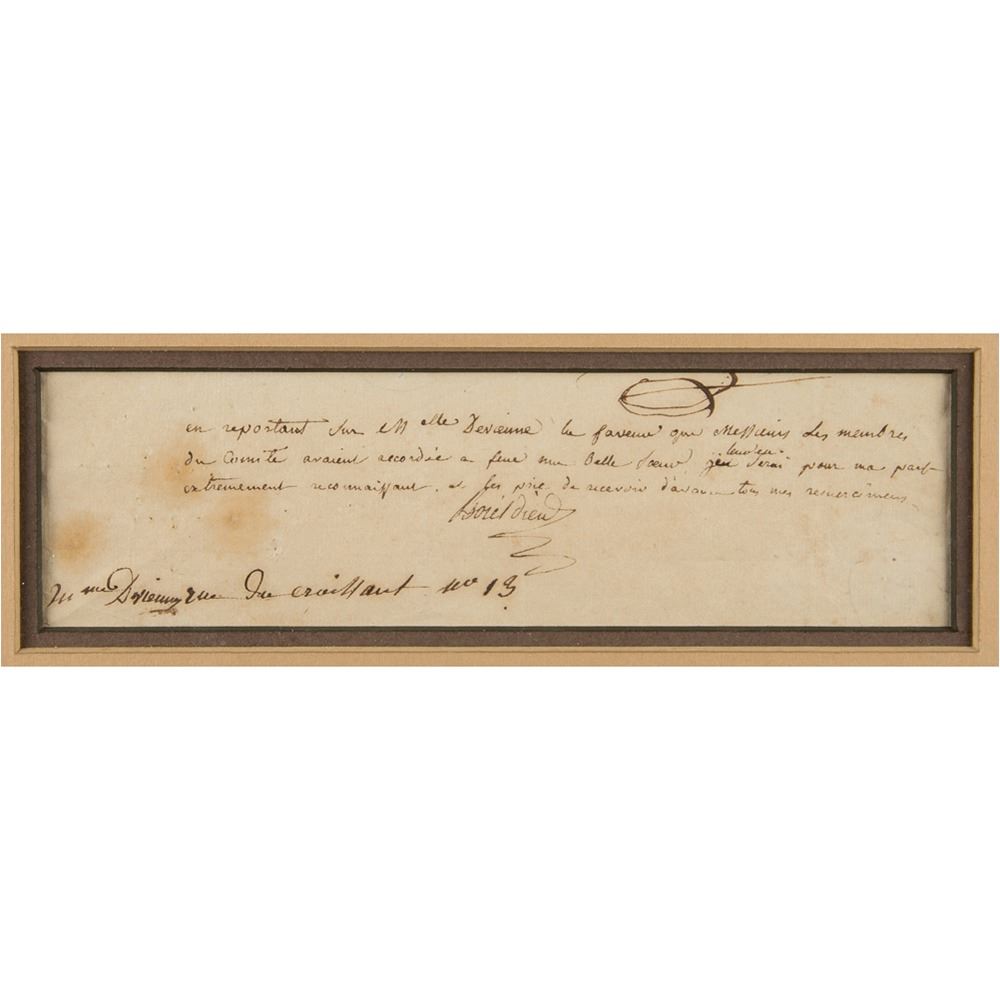 en reportant sur Mlle Devienne la faveur que Messieurs les membres
du Comité avaient accordée a feue ma Belle Soeur, j'en serai pour ma part
extremement reconnaissant, et les prie de recevoir d'avance tous mes remercimens
Boieldieu
Mme Devienne rue du croissant no 13